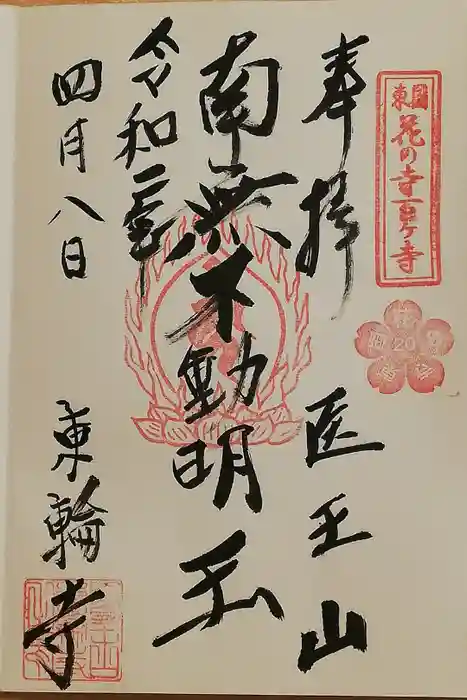 東国花の寺百ヶ寺
20
奉拝 医王山
南無不動明王
令和二年
四月八日
東輪寺